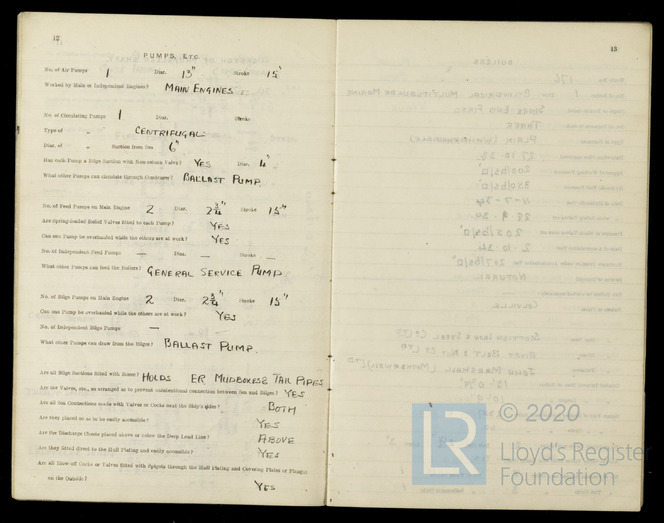 12
PUMPS, ETC.
No. of Air Pumps 1 Diar. 13" Stroke 15"
Worked by Main or Independent Engines? MAIN ENGINES
No. of Circulating Pumps 1 Diar. Stroke
Type of „ CENTRIFUGAL
Diar. of „ Suction from Sea 6"
Has each Pump a Bilge Suction with Non-return Valve? YES Diar. 4"
What other Pumps can circulate through Condenser? BALLAST PUMP.
No. of Feed Pumps on Main Engine 2 Diar. 2 3/4" Stroke 15"
Are Spring-loaded Relief Valves fitted to each Pump? YES
Can one Pump be overhauled while the others are at work? YES
No. of Independent Feed Pumps — Diar. — Stroke —
What other Pumps can feed the Boilers? GENERAL SERVICE PUMP
No. of Bilge Pumps on Main Engine 2 Diar. 2 3/4" Stroke 15"
Can one Pump be overhauled while the others are at work? YES
No. of Independent Bilge Pumps —
What other Pumps can draw from the Bilges? BALLAST PUMP.
Are all Bilge Suctions fitted with Roses? HOLDS ER MUDBOXES & TAIL PIPES
Are the Valves, etc., so arranged as to prevent unintentional connection between Sea and Bilges? YES
Are all Sea Connections made with Valves or Cocks next the Ship's sides? BOTH
Are they placed so as to be easily accessible? YES
Are the Discharge Chests placed above or below the Deep Load Line? ABOVE
Are they fitted direct to the Hull Plating and easily accessible? YES
Are all Blow-off Cocks or Valves fitted with Spigots through the Hull Plating and Covering Plates or Flanges
on the Outside? YES
13
LR
© 2020
Lloyd's Register
Foundation